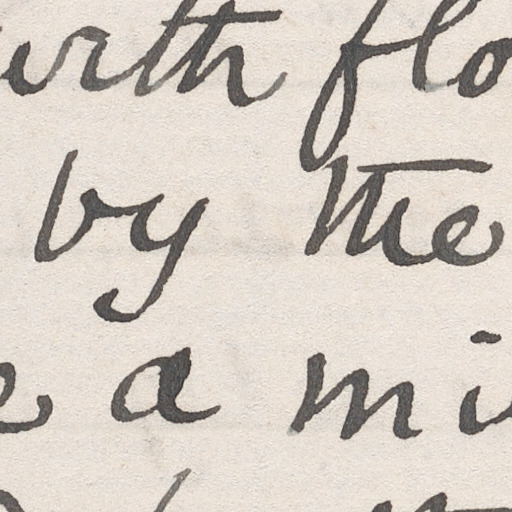 with flo
by the
e a mi